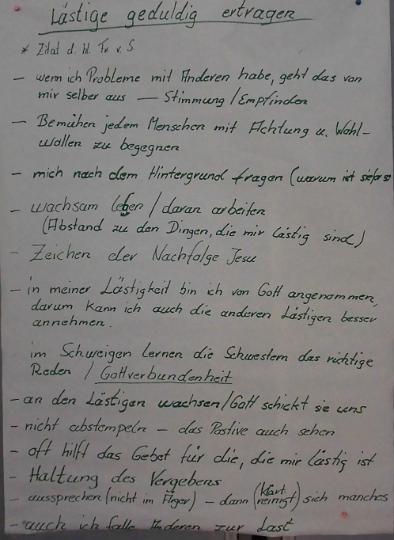 Lästige geduldig ertragen
* Zitat d. hl. Fr. v. S.
- wenn ich Probleme mit Anderen habe, geht das von
mir selber aus — Stimmung / Empfinden
- Bemühen jedem Menschen mit Achtung u. Wohl-
wollen zu begegnen
- mich nach dem Hintergrund fragen (warum ist sie/er so
- wachsam leben / daran arbeiten
(Abstand zu den Dingen, die mir lästig sind)
- Zeichen der Nachfolge Jesu
- in meiner Lästigkeit bin ich von Gott angenommen,
darum kann ich auch die anderen Lästigen besser
annehmen.
im Schweigen lernen die Schwestern das richtige
Reden / Gottverbundenheit
- an den Lästigen wachsen / Gott schickt sie uns
- nicht abstempeln - das Postive auch sehen
- oft hilft das Gebet für die, die mir lästig ist
- Haltung des Vergebens
- aussprechen (nicht im Ärger) - dann (klärt reinigt) sich manches
- auch ich falle Anderen zur Last